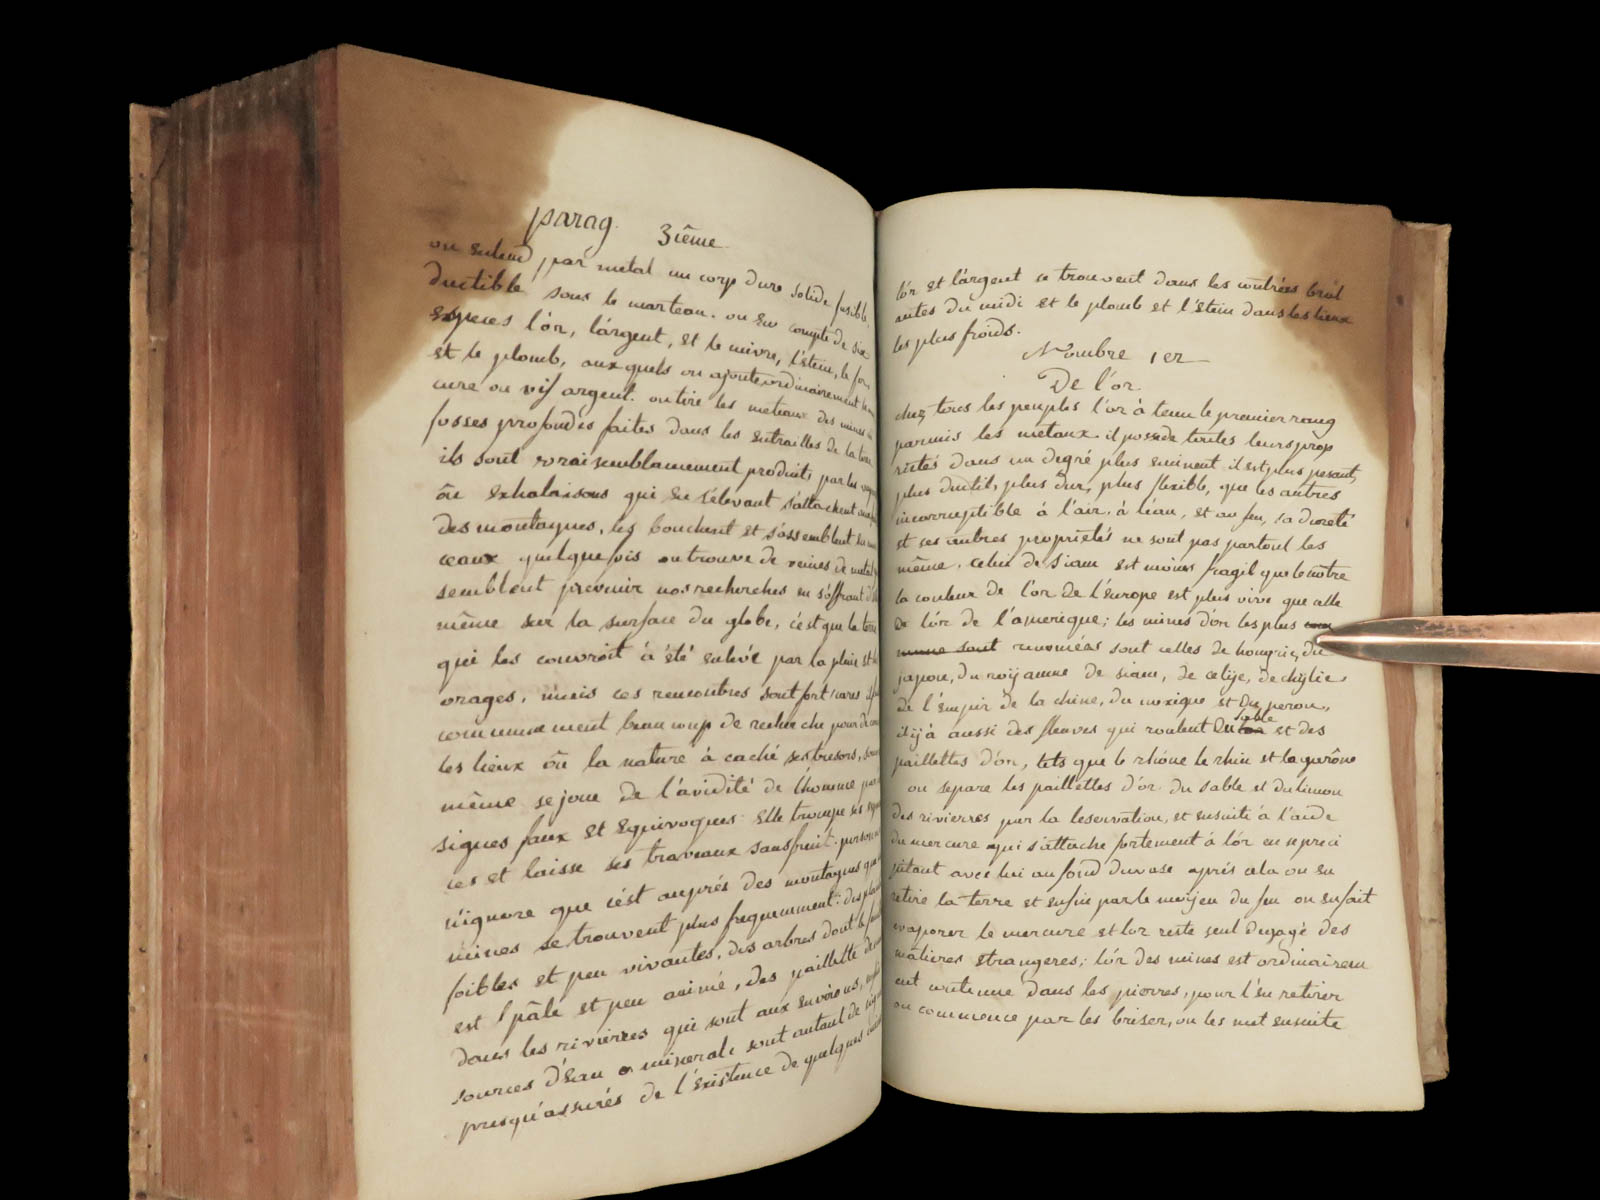 parag. 3ième
on entend par metal un corp dure solide fusible,
ductible sous le marteau. on en compte de six
especes l'òr, l'argent, et le cuivre, l'étein, le fer,
et le plomb, aux quels on ajoute ordinairement le mer
cure ou vif argent. on tire les metaux des mines
fosses profondes faites dans les entrailles de la terre
ils sont vraisemblamement produits par les
òu exhalaisons qui en s'élevant s'attachent aux
des montagnes, les bouchent et s'assemblent en mon
ceaux quelque fois on trouve de veines de metal
semblent prevenir nos recherches en s'offrant d'elle
même sur la surface du globe, c'est que la terre
qui les couvroit à été enlevé par la pluie et les
orages, mais ces rencontres sont fort rares il faut
communement beaucoup de recherche pour
les lieux òu la nature à caché ses tresors,
même se joue de l'avidité de l'homme par
signes faux et equivoques. Elle trompe ses
ces et laisse ses traveaux sans fruit. personne
n'ignore que c'est auprés des montagnes que
mines se trouvent plus frequemment: des plantes
foibles et peu vivantes, des arbres dont le
est pâle et peu animé, des paillette
dans les rivierres qui sont aux environs,
sources d'eau minerale sont autant de
presqu'assurés de l'existence de quelques
l'òr et l'argent se trouvent dans les contrées brûl
antes du midi et le plomb et l'étein dans les lieux
les plus froids.
Nombre 1er
De l'or.
chez tous les peuples l'or à tenu le premier rang
parmis les metaux. il possede toutes leurs prop
rietés dans un degré plus eminent. il est plus pesant,
plus ductil, plus dur, plus flexible, que les autres
incorruptible à l'air, à l'eau, et au feu, sa dureté
et ses autres proprietés ne sont pas partout les
même. celui de siam est moins fragil que le nôtre
la couleur de l'or de l'europe est plus vive que celle
De l'òr de l'amerique; les mines d'òr les plus
sont renomées sont celles de hongrie, du
japon, du roÿaume de siam, de
de l'empir de la chine, du mexique et Du perou,
il ÿ à aussi des fleuves qui roulent Du sable et des
paillettes d'òr, tels que le rhône le rhin et la garône
on separe les paillettes d'or du sable et du limon
des rivierres par la leservation, et ensuite à l'aide
du mercure qui s'attache fortement à l'òr en se preci
pitant avec lui au fond du vase aprés cela on en
retire la terre et enfin par le moÿen du feu on en fait
evaporer le mercure et l'or reste seul degagé des
matieres etrangeres; l'òr des mines est ordinairem
ent contenue dans les pierres, pour l'en retirer
on commence par les briser, on les met ensuite